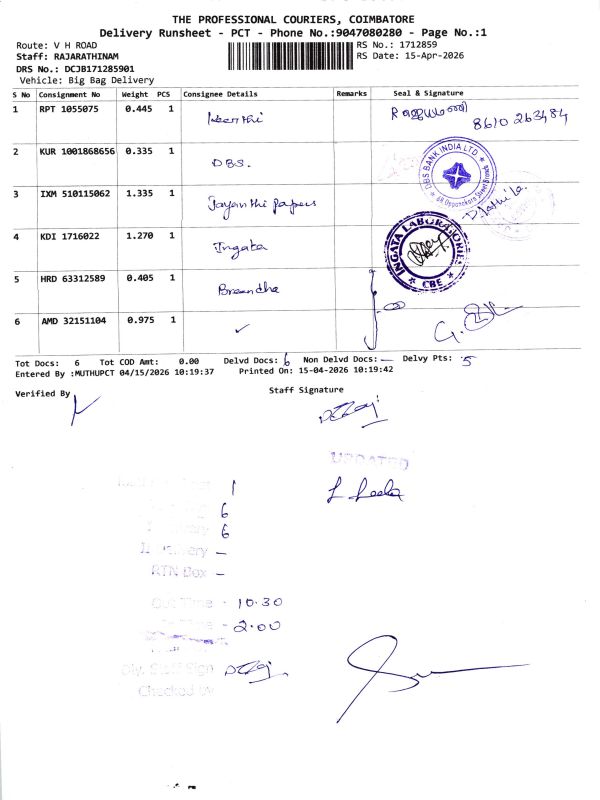 THE PROFESSIONAL COURIERS, COIMBATORE
Delivery Runsheet - PCT - Phone No.:9047080280 - Page No.:1
Route: V H ROAD
RS No.: 1712859
Staff: RAJARATHINAM
RS Date: 15-Apr-2026
DRS No.: DCJB171285901
Vehicle: Big Bag Delivery
S No Consignment No Weight PCS Consignee Details Remarks Seal & Signature
1 RPT 1055075 0.445 1 8610 263484
2 KUR 1001868656 0.335 1 DBS.
DBS BANK INDIA LTD.
3 IXM 510115062 1.335 1 Jayanthi papers
4 KDI 1716022 1.270 1 Ingata
INGATA LABORATORIES
CBE
5 HRD 63312589 0.405 1
6 AMD 32151104 0.975 1 ✓
Tot Docs: 6 Tot COD Amt: 0.00 Delvd Docs: 6 Non Delvd Docs: — Delvy Pts: 5
Entered By :MUTHUPCT 04/15/2026 10:19:37 Printed On: 15-04-2026 10:19:42
Verified By
Staff Signature
UPDATED
1
6
6
–
RTN Box –
Out Time - 10.30
Time - 2.00
Dly. Staff Sign
Checked by